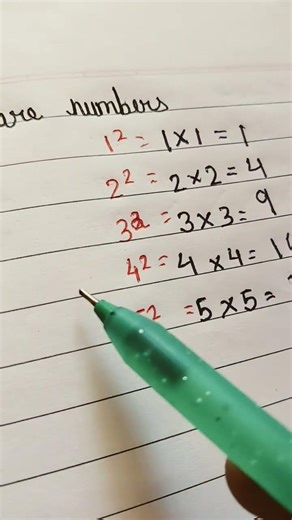 are numbers
1² = 1×1 = 1
2² = 2×2 = 4
3² = 3×3 = 9
4² = 4×4 = 1
2 = 5×5 =